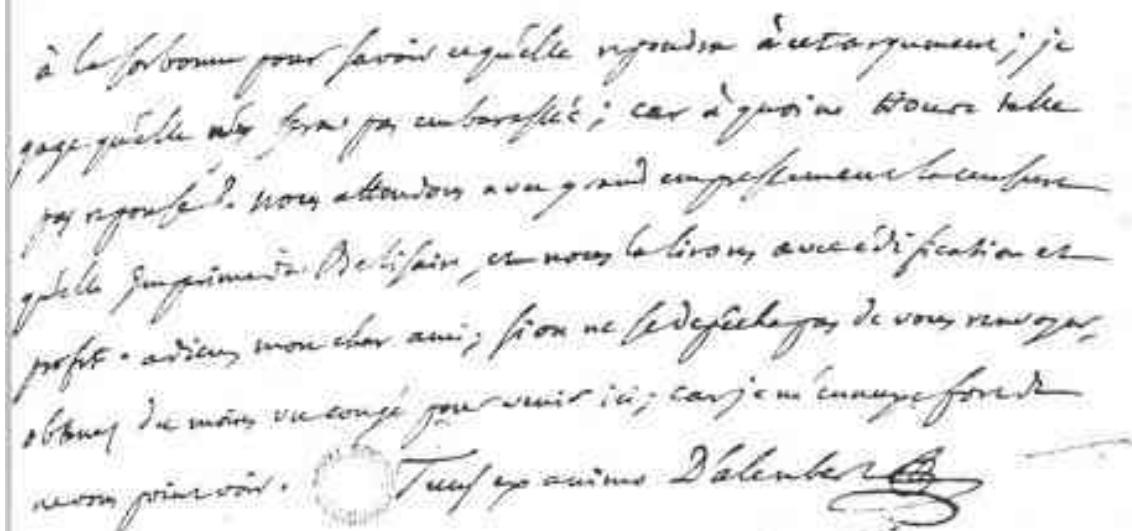 à la sorbonne pour savoir cequ'elle repondra à cet argument ; je
gage qu'elle n'en sera pas embarassée ; car à quoi ne trouve telle
pas reponse ? nous attendons avec grand empressement la censure
qu'elle imprime de Belisaire, et nous la lirons avec édification et
profit. adieu, mon cher ami ; si on ne se depêche pas de vous renvoyer,
obtenez du moins un congé pour venir ici ; car je m'ennuye fort de
ne vous point voir. Tuus ex animo D'alembert